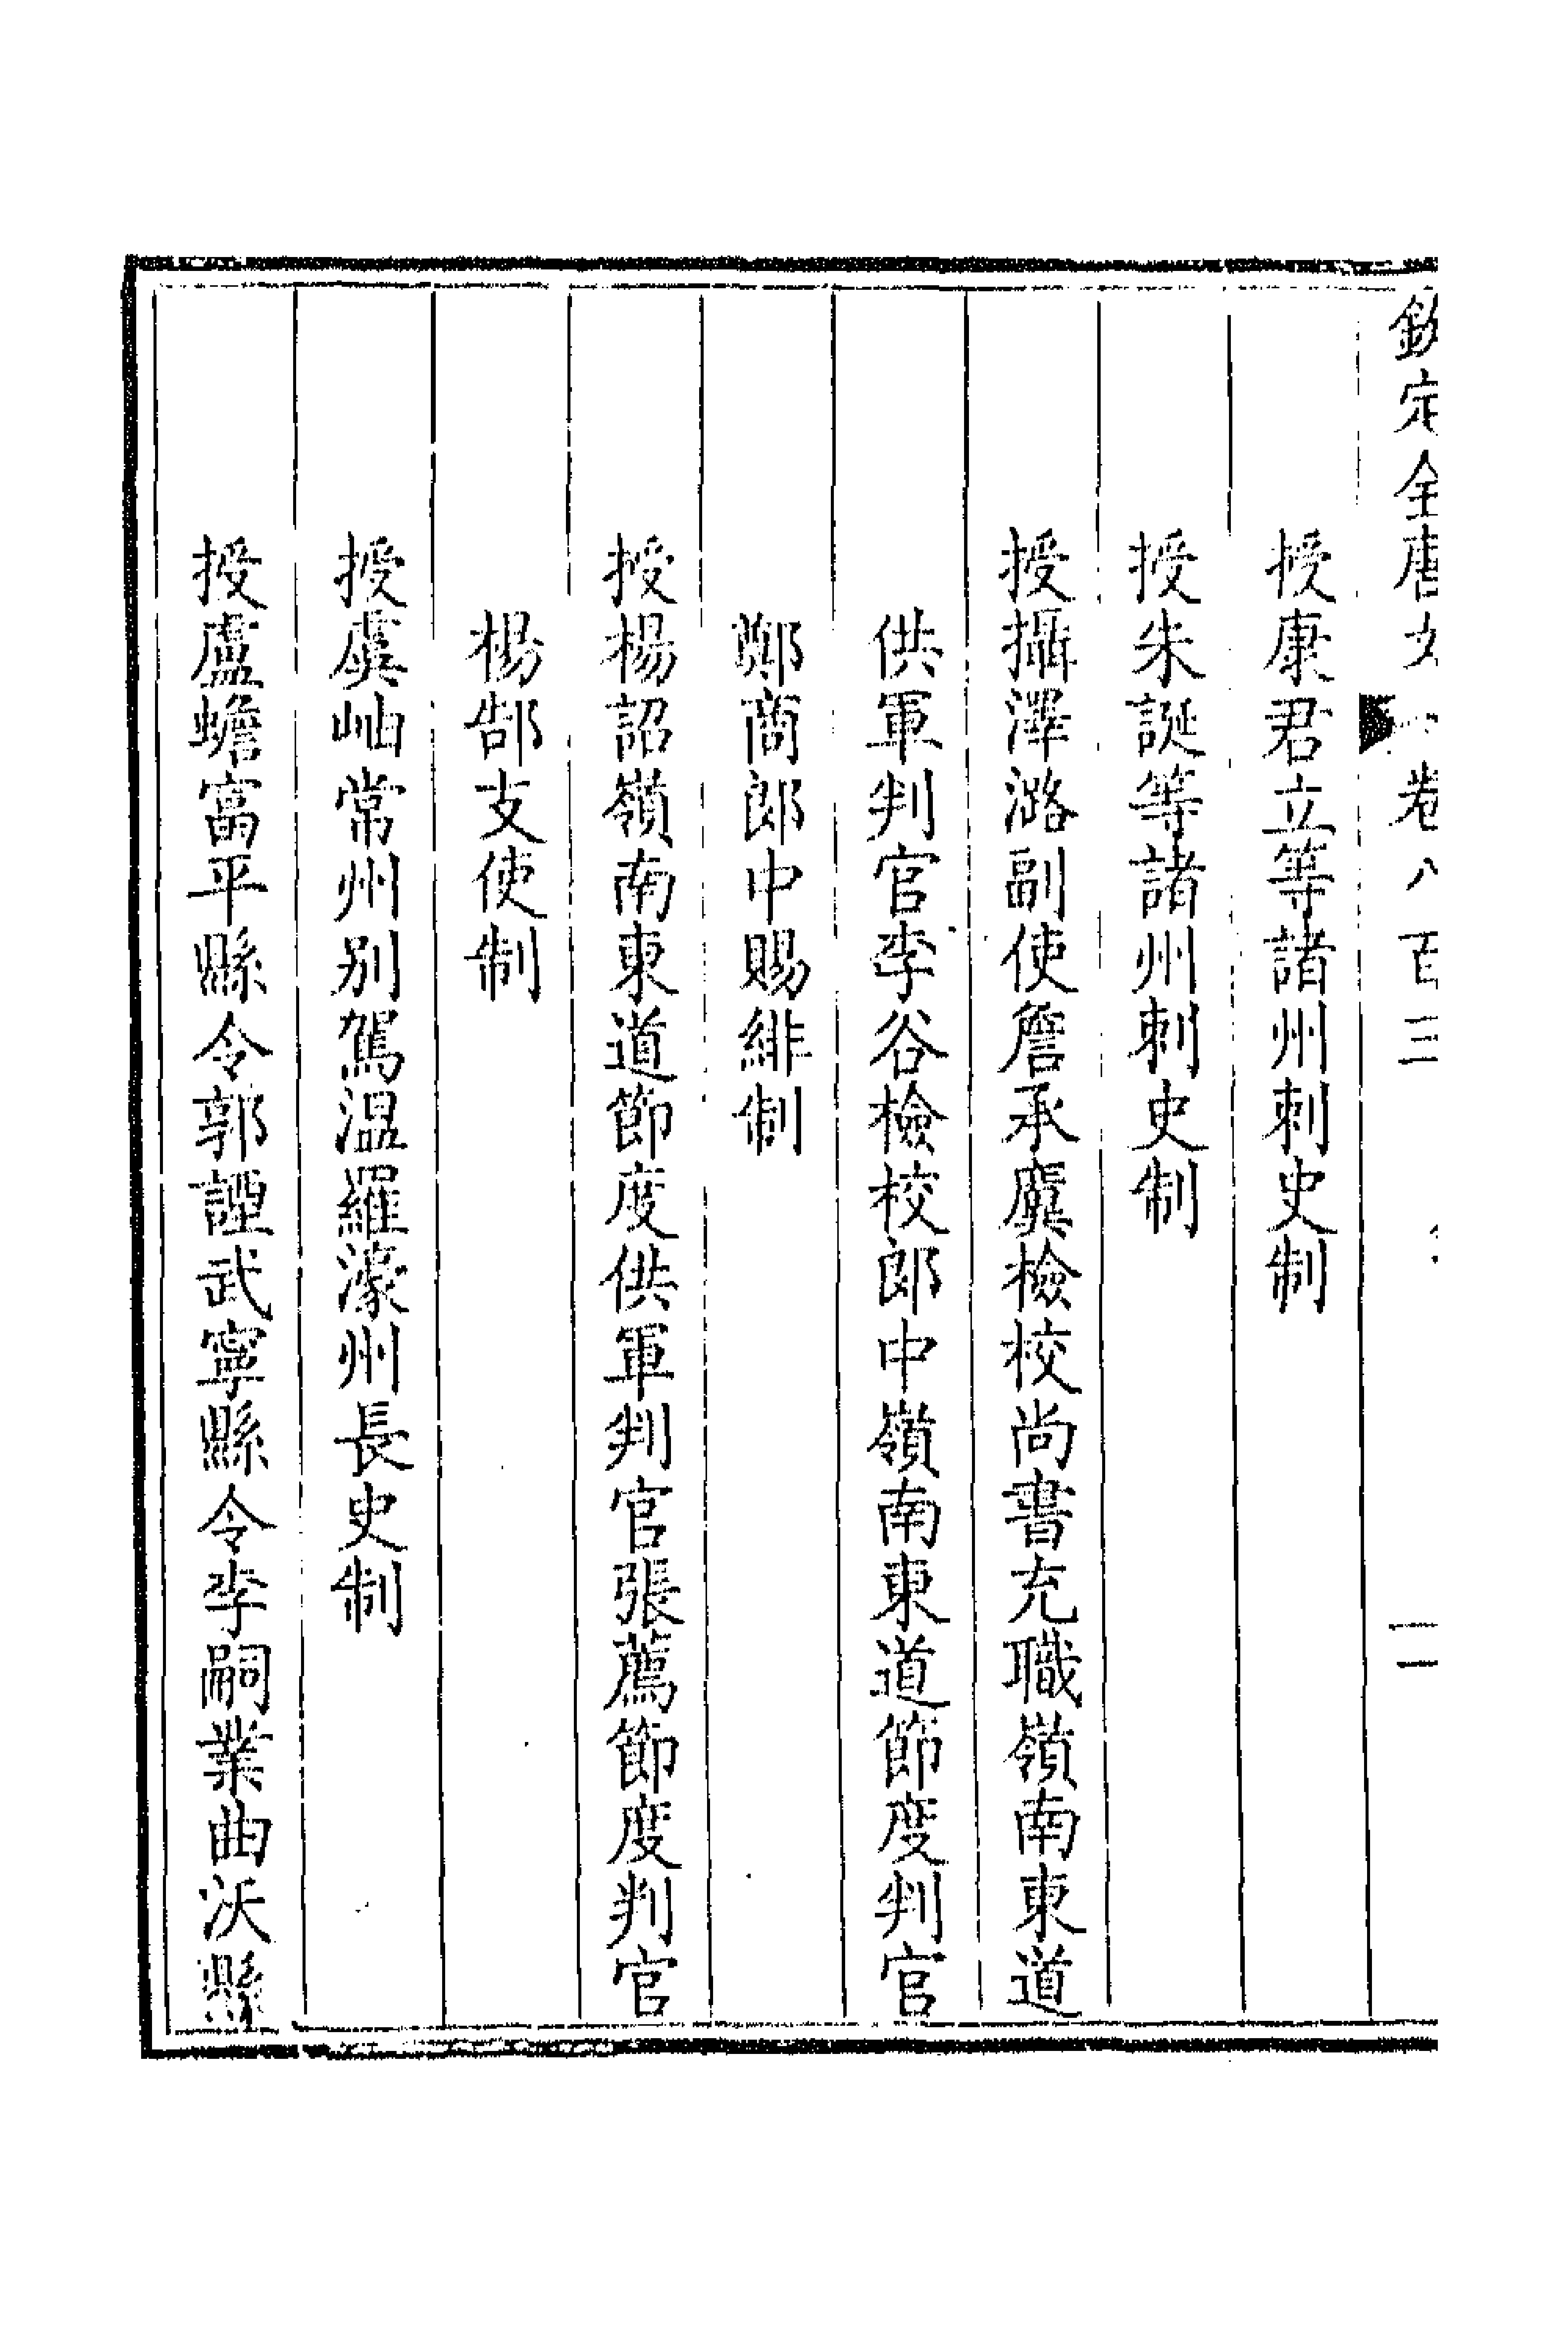 欽定全唐文 卷八百三 二
授康君立等諸州刺史制
授朱誕等諸州刺史制
授攝澤潞副使詹承虞檢校尚書充職嶺南東道
供軍判官李谷檢校郎中嶺南東道節度判官
鄭商郎中賜緋制
授楊詔嶺南東道節度供軍判官張薦節度判官
楊郜支使制
授虞岫常州別駕溫羅濠州長史制
授盧蟾富平縣令郭諲武寧縣令李嗣業曲沃縣